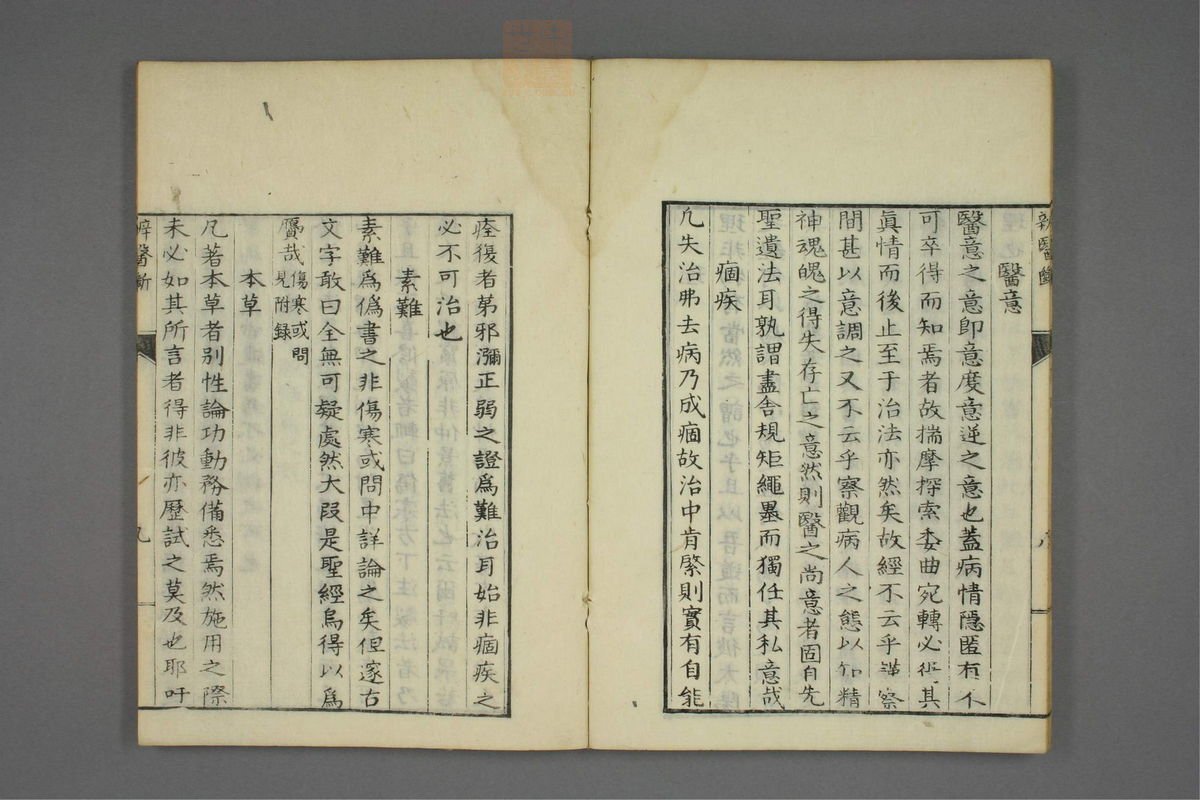 醫意
醫意之意卽意度意逆之意也蓋病情隱匿有不
可卒得而知焉者故揣摩探索委曲宛轉必得其
眞情而後止至于治法亦然矣故經不云乎謹察
間甚以意調之又不云乎察觀病人之態以知精
神魂魄之得失存亡之意然則醫之尚意者固自先
聖遺法耳孰謂盡舍規矩繩墨而獨任其私意哉
痼疾
凡失治弗去病乃成痼故治中肯綮則實有自能
痊復者第邪瀰正弱之證爲難治耳始非痼疾之
必不可治也
素難
素難爲僞書之非傷寒或問中詳論之矣但邃古
文字敢曰全無可疑處然大段是聖經烏得以爲
贋哉傷寒或問
見附录
本草
凡著本草者別性論功動務備悉焉然施用之際
未必如其所言者得非彼亦歷試之莫及也耶吁
辨醫斷
九